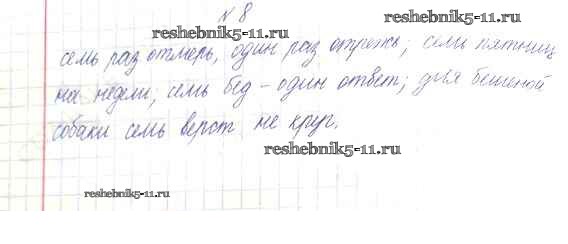 № 8
reshebnik5-11.ru
семь раз отмерь, один раз отрежь; семь пятниц
на недели; семь бед - один ответ; для бешеной
собаки семь верст не круг.
reshebnik5-11.ru
reshebnik5-11.ru